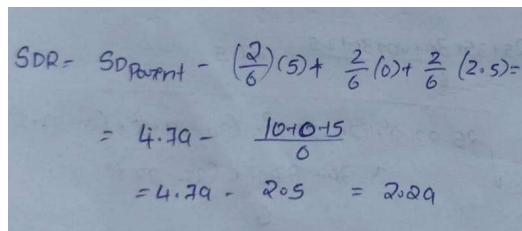 SDR = SDParent - (2/6)(5) + 2/6 (0) + 2/6 (2.5) =
= 4.79 - 10+0+5/6
= 4.79 - 2.5 = 2.29